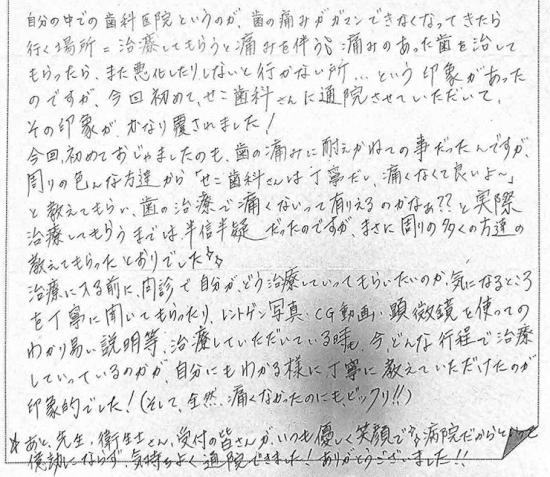 自分の中での歯科医院というのが、歯の痛みがガマンできなくなってきたら
行く場所=治療してもらうと痛みを伴う、痛みのあった歯を治して
もらったら、また悪化したりしないと行かない所…という印象があった
のですが、今回初めて、せこ歯科さんに通院させていただいて、
その印象が、かなり覆されました!
今回、初めておじゃましたのも、歯の痛みに耐えかねての事だったんですが、
周りの色んな方達から「せこ歯科さんは丁寧だし、痛くなくて良いよ〜」
と教えてもらい、歯の治療で痛くないって有りえるのかなぁ??と実際
治療してもらうまでは、半信半疑だったのですが、まさに周りの多くの方達の
教えてもらったとおりでした☆
治療に入る前に、問診で自分が、どう治療していってもらいたいのか、気になるところ
を丁寧に聞いてもらったり、レントゲン写真・CG動画・顕微鏡を使っての
わかり易い説明等、治療していただいている時も、今、どんな行程で治療
していっているのかが、自分にもわかる様に丁寧に教えていただけたのが
印象的でした!(そして、全然、痛くなかったのにも、ビックリ!!)
☆あと、先生、衛生士さん、受付の皆さんが、いつも優しく笑顔で☆病院だからといって
億劫にならず、気持ちよく通院できました!ありがとうございました!!